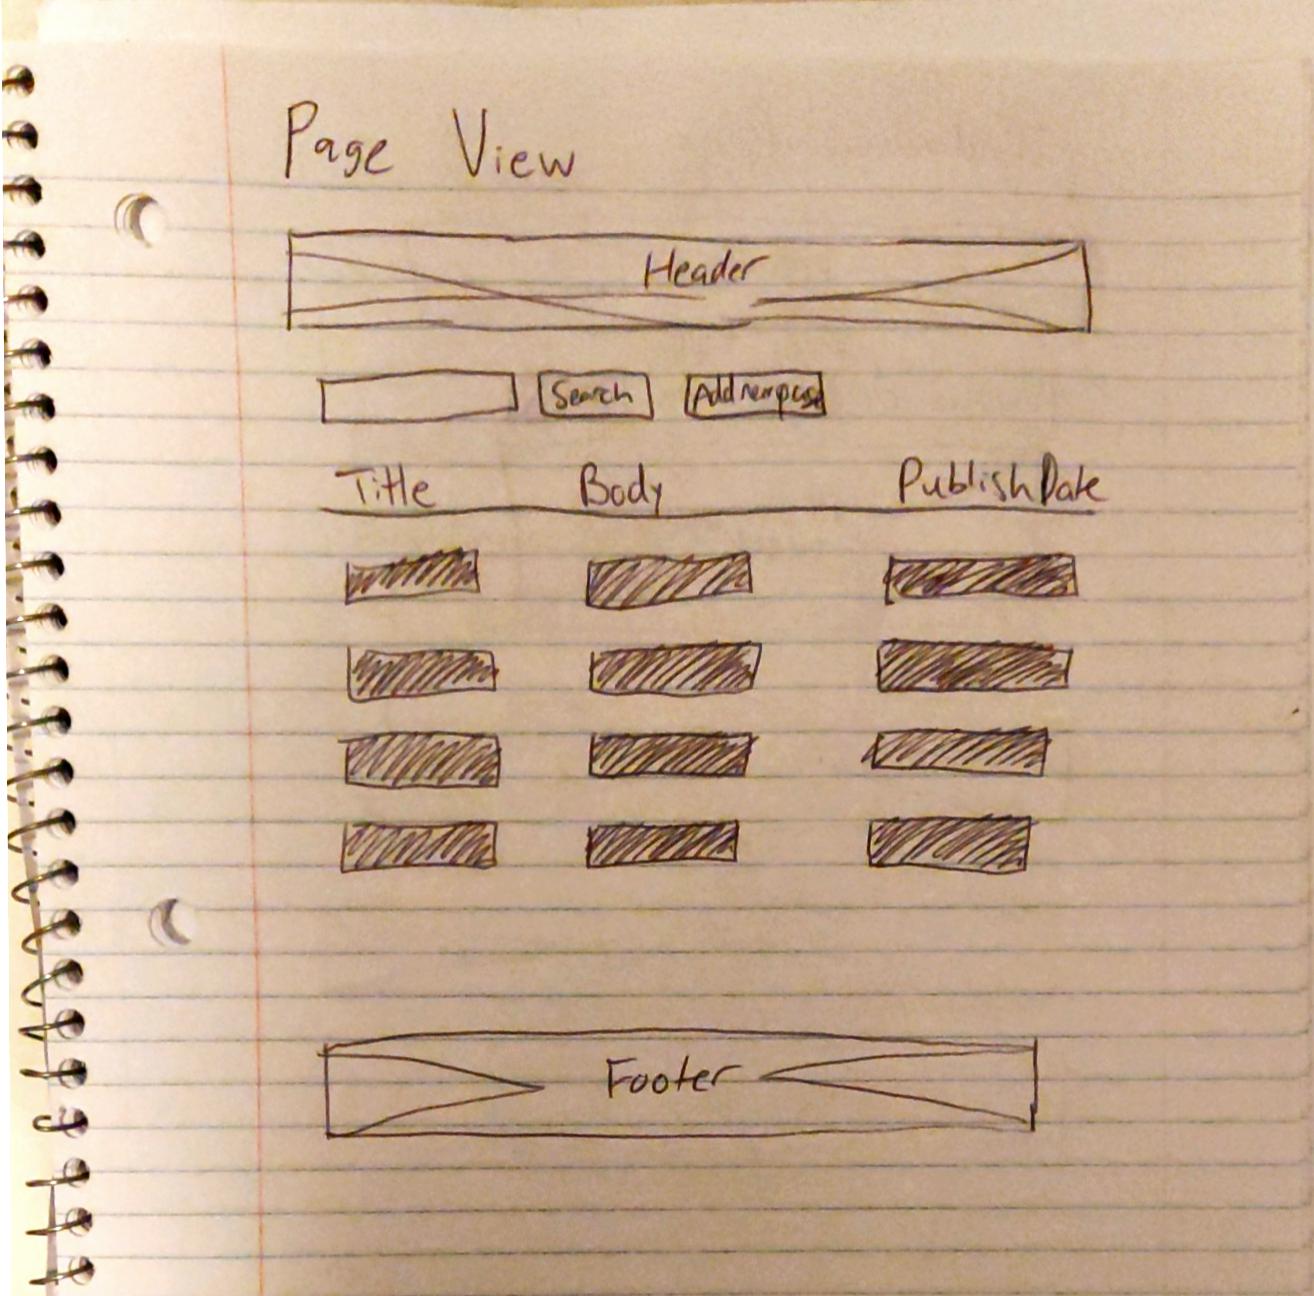 Page View
Header
Search Add new post
Title Body Publish Date
Footer